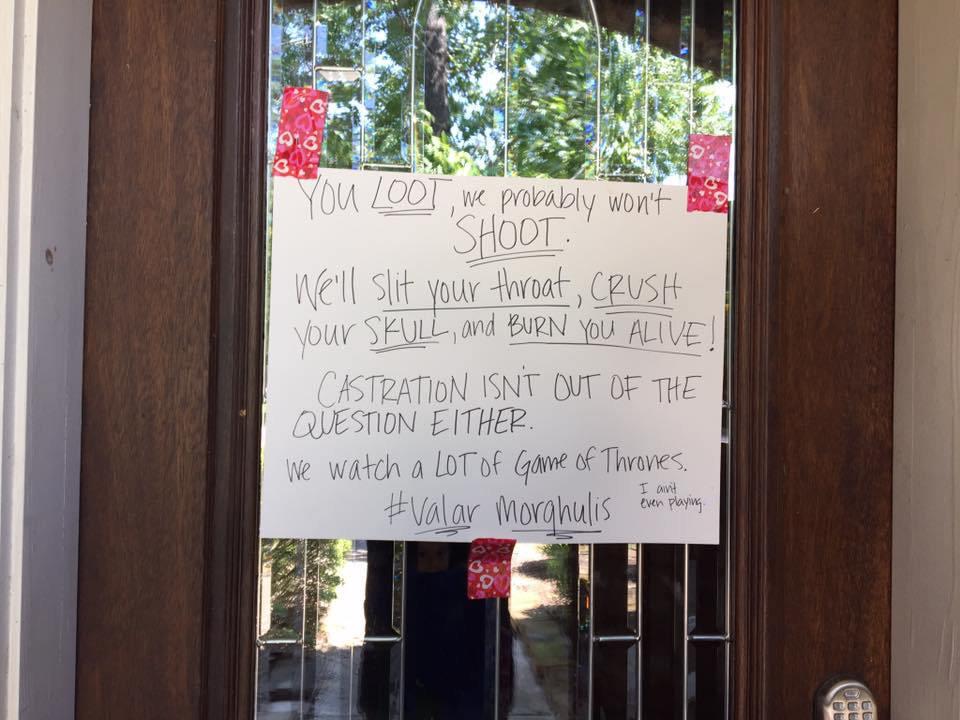 YOU LOOT, we probably won't
SHOOT.
We'll slit your throat, CRUSH
your SKULL, and BURN YOU ALIVE!
CASTRATION ISN'T OUT OF THE
QUESTION EITHER.
We watch a LOT of Game of Thrones.
#Valar Morghulis
I ain't
even playing.